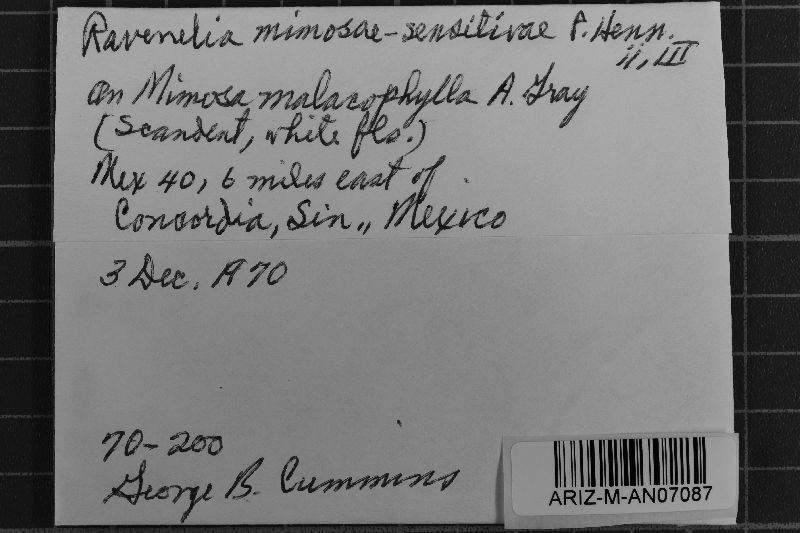 Ravenelia mimosae-sensitivae P. Henn.
II, III
on Mimosa malacophylla A. Gray
(Scandent, white fls.)
Mex 40, 6 miles east of
Concordia, Sin., Mexico
3 Dec. 1970
70-200
George B. Cummins
ARIZ-M-AN07087